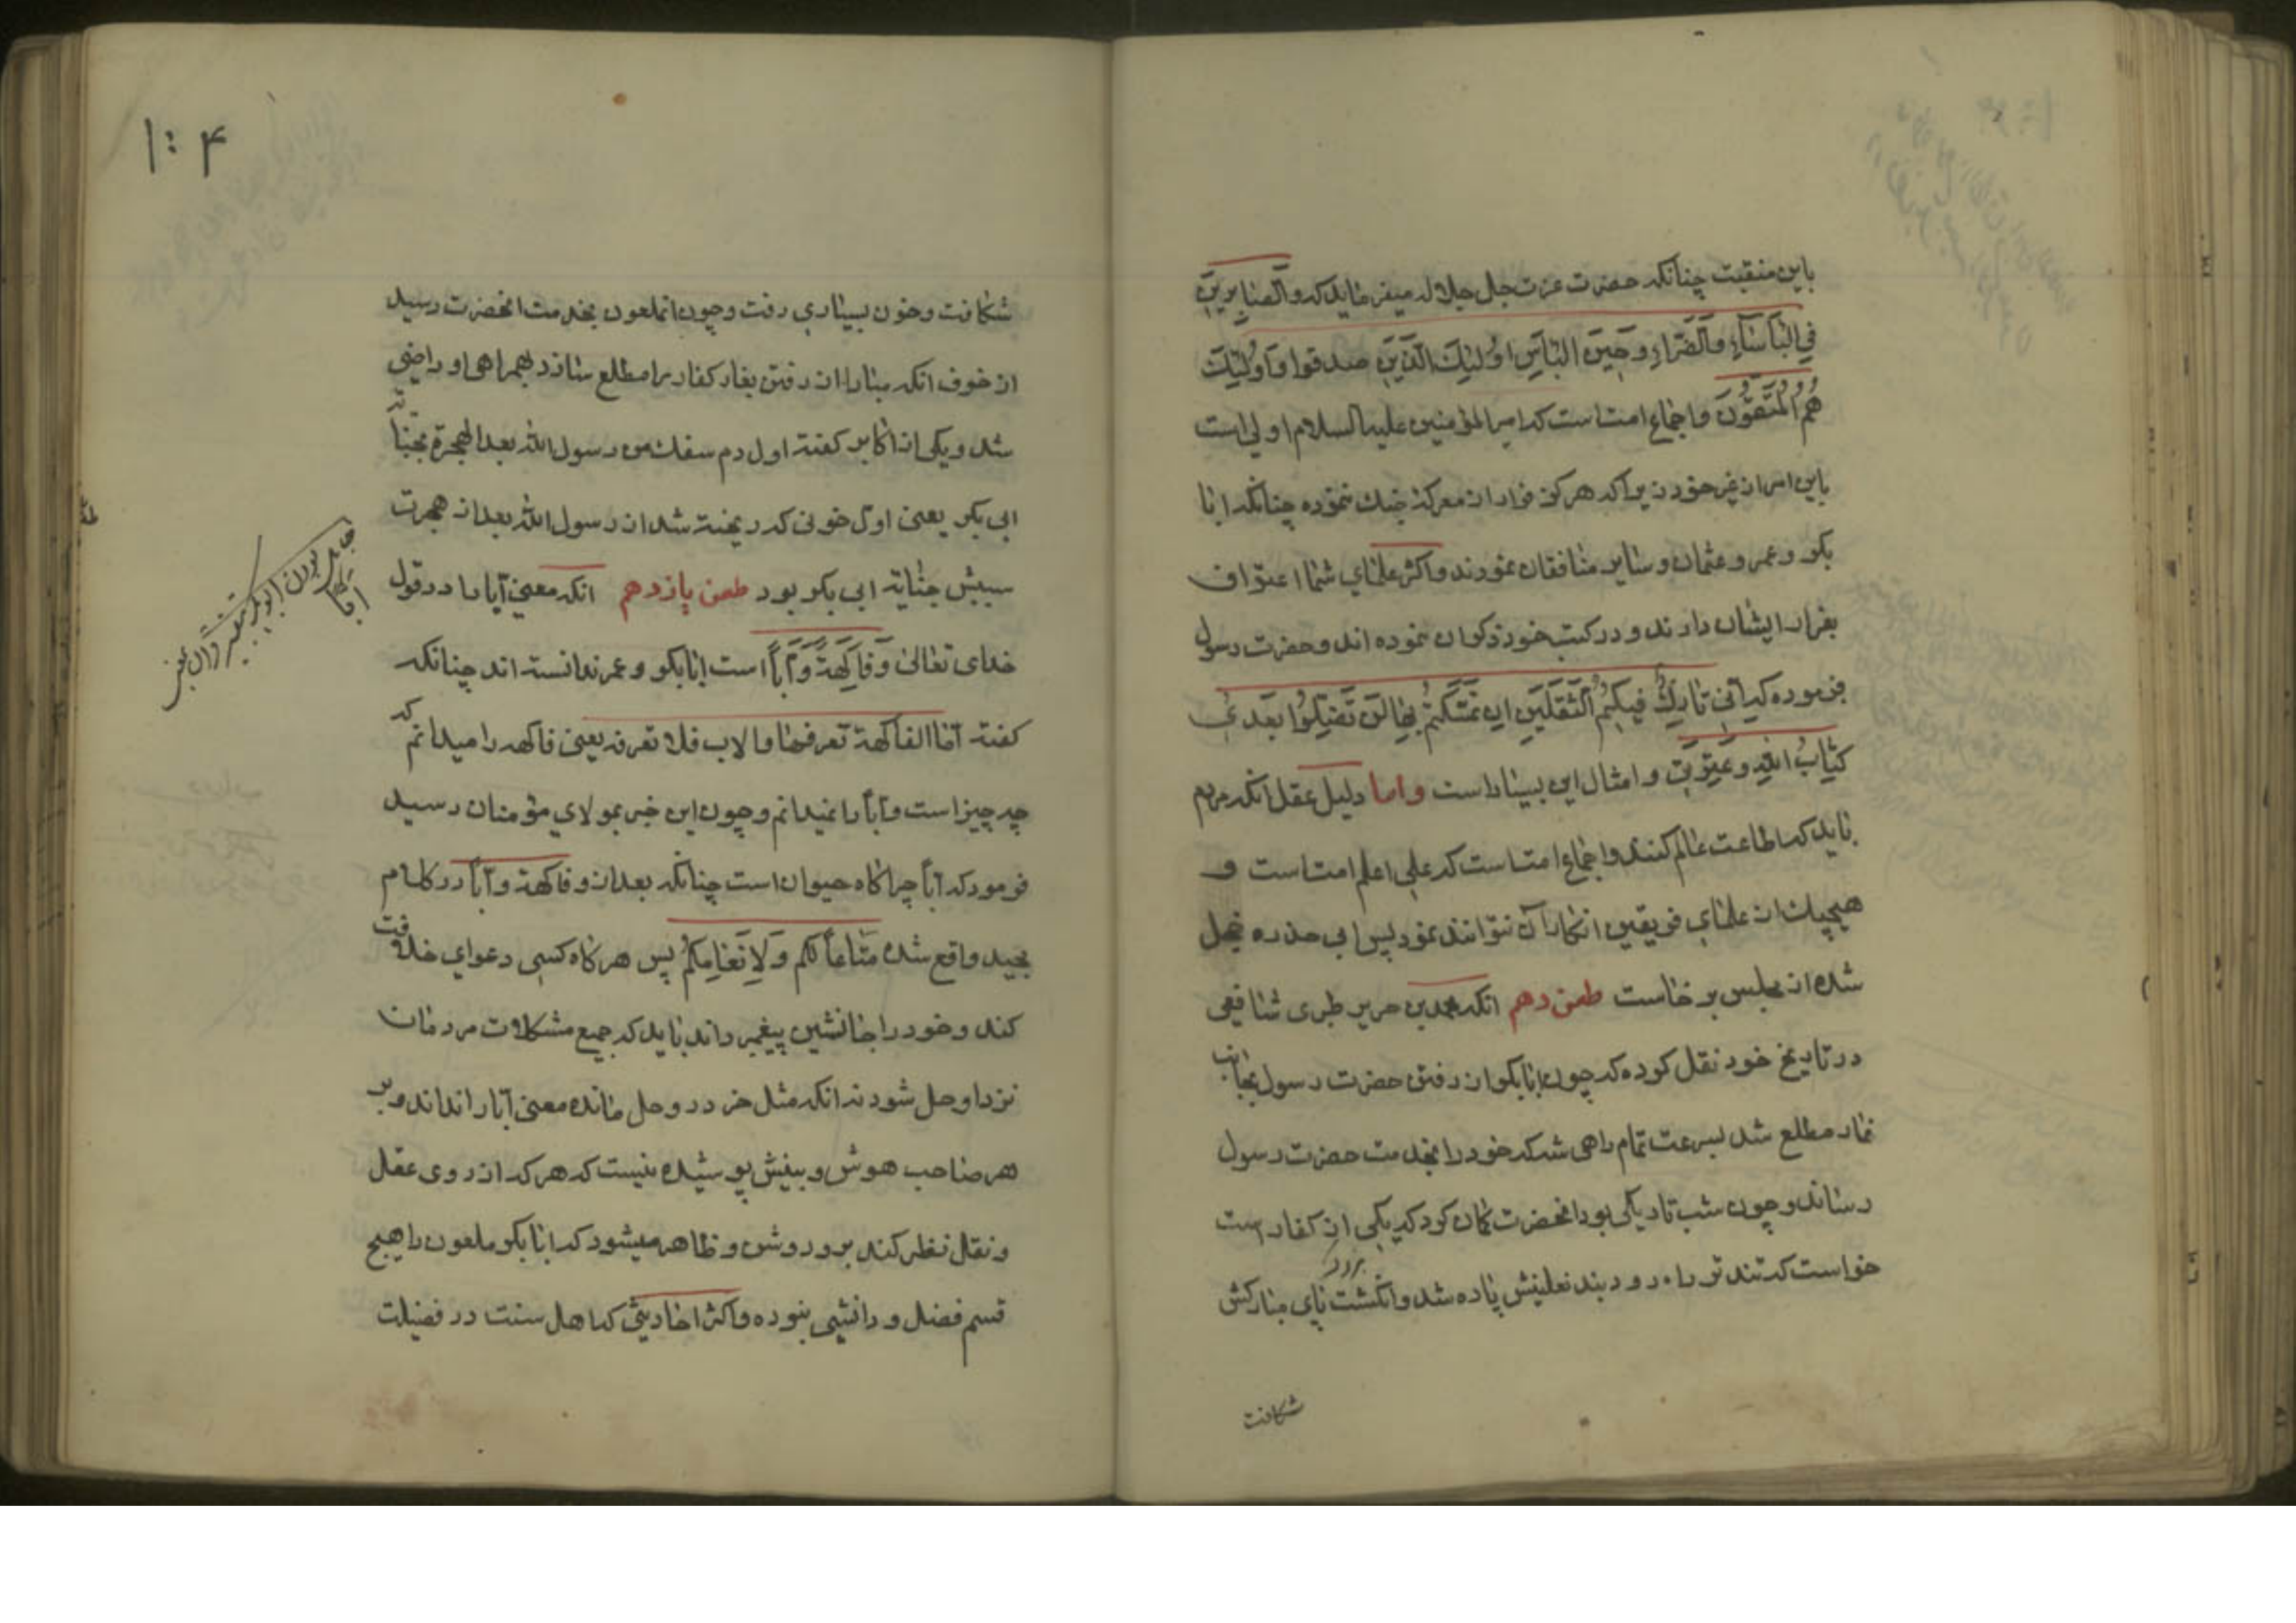 باین منقبت چنانکه حضرت عزت جل جلاله میفرماید که وَالصّٰابِرِینَ
فِی الْبَأسٰآءِ وَالضَّرّٰاءِ وَحِینَ الْبَأسِ اُولٰئِكَ الَّذِینَ صدقوا وَاُولٰئِكَ
هُمُ الْمُتَّقُونَ واجماع امت است که امیر المؤمنین علیه السلام اولی است
باین امر از غیر خود زیرا که هرکز فرار از معرکهٔ جنك ننموده چنانکه ابا
بکر و عمر و عثمان و سایر منافقان نمودند واکثر علمای شما اعتراف
بفرار ایشان دارند و در کتب خود ذکر ان نموده اند و حضرت رسول
فرموده که اِنّی تٰارِكٌ فیکُمُ الثَّقَلَینِ اِن تَمَسَّکتُم بِهِمٰا لَن تَضِلُّوا بَعدِی
کِتٰابُ اللّٰهِ وَعِتْرَتی و امثال این بسیار است واما دلیل عقل انکه مردم
باید که اطاعت عالم کنند و اجماع امت است که علی اعلم امت است و
هیچیك از علمای فریقین انکار ان نتوانند نمود پس ابی حذره خجل
شده از مجلس بر خاست طعن دهم انکه محمد بن جریر طبری شافعی
در تاریخ خود نقل کرده که چون ابابکر از رفتن حضرت رسول بجانب
غار مطلع شد بسرعت تمام راهی شد که خود را بخدمت حضرت رسول
رساند و چون شب تاریکی بود انحضرت کمان کرد که یکی از کفار است
خواست که تند تر راه رود بند نعلینش پاره شد وانکشت پای مبارکش
برود
شکافت
۱۰۴
شکافت و خون بسیاری رفت و چون انملعون بخدمت انحضرت رسید
از خوف انکه مبادا از رفتن بغار کفار را مطلع سازد بهمراهی او راضی
شد و یکی از اکابر کفته اول دم سفك من رسول الله بعد الهجرة بجنایة
ابی بکر یعنی اول خونی که ریخته شد از رسول الله بعد از هجرت
سببش جنایة ابی بکر بود طعن یازدهم انکه معنی اَبّا را در قول
خدای تعالی وَفٰاکِهَةً وَاَبّاً است ابابکر و عمر ندانسته اند چنانکه
کفته اما الفاکهة تعرفها والاب فلا تعرفه یعنی فاکهه را میدانم که
چه چیز است واَبّاً را نمیدانم و چون این خبر بمولای مؤمنان رسید
فرمود که اَبّاً چراکاه حیوان است چنانکه بعد از وفاکهة واَبّاً در کلام
مجید واقع شده مَتٰاعاً لَکُم وَلِاَنْعٰامِکُم پس هر کاه کسی دعوای خلافت
کند و خود را جانشین پیغمبر داند باید که جمیع مشکلات مردمان
نزد او حل شود نه انکه مثل خر در وحل مانده معنی اَبّا را نداند و بر
هر صاحب هوش و بینش پوشیده نیست که هر که از روی عقل
و نقل نظر کند برو روشن و ظاهر میشود که ابابکر ملعون را هیچ
قسم فضل و دانشی نبوده واکثر احادیثی که اهل سنت در فضیلت